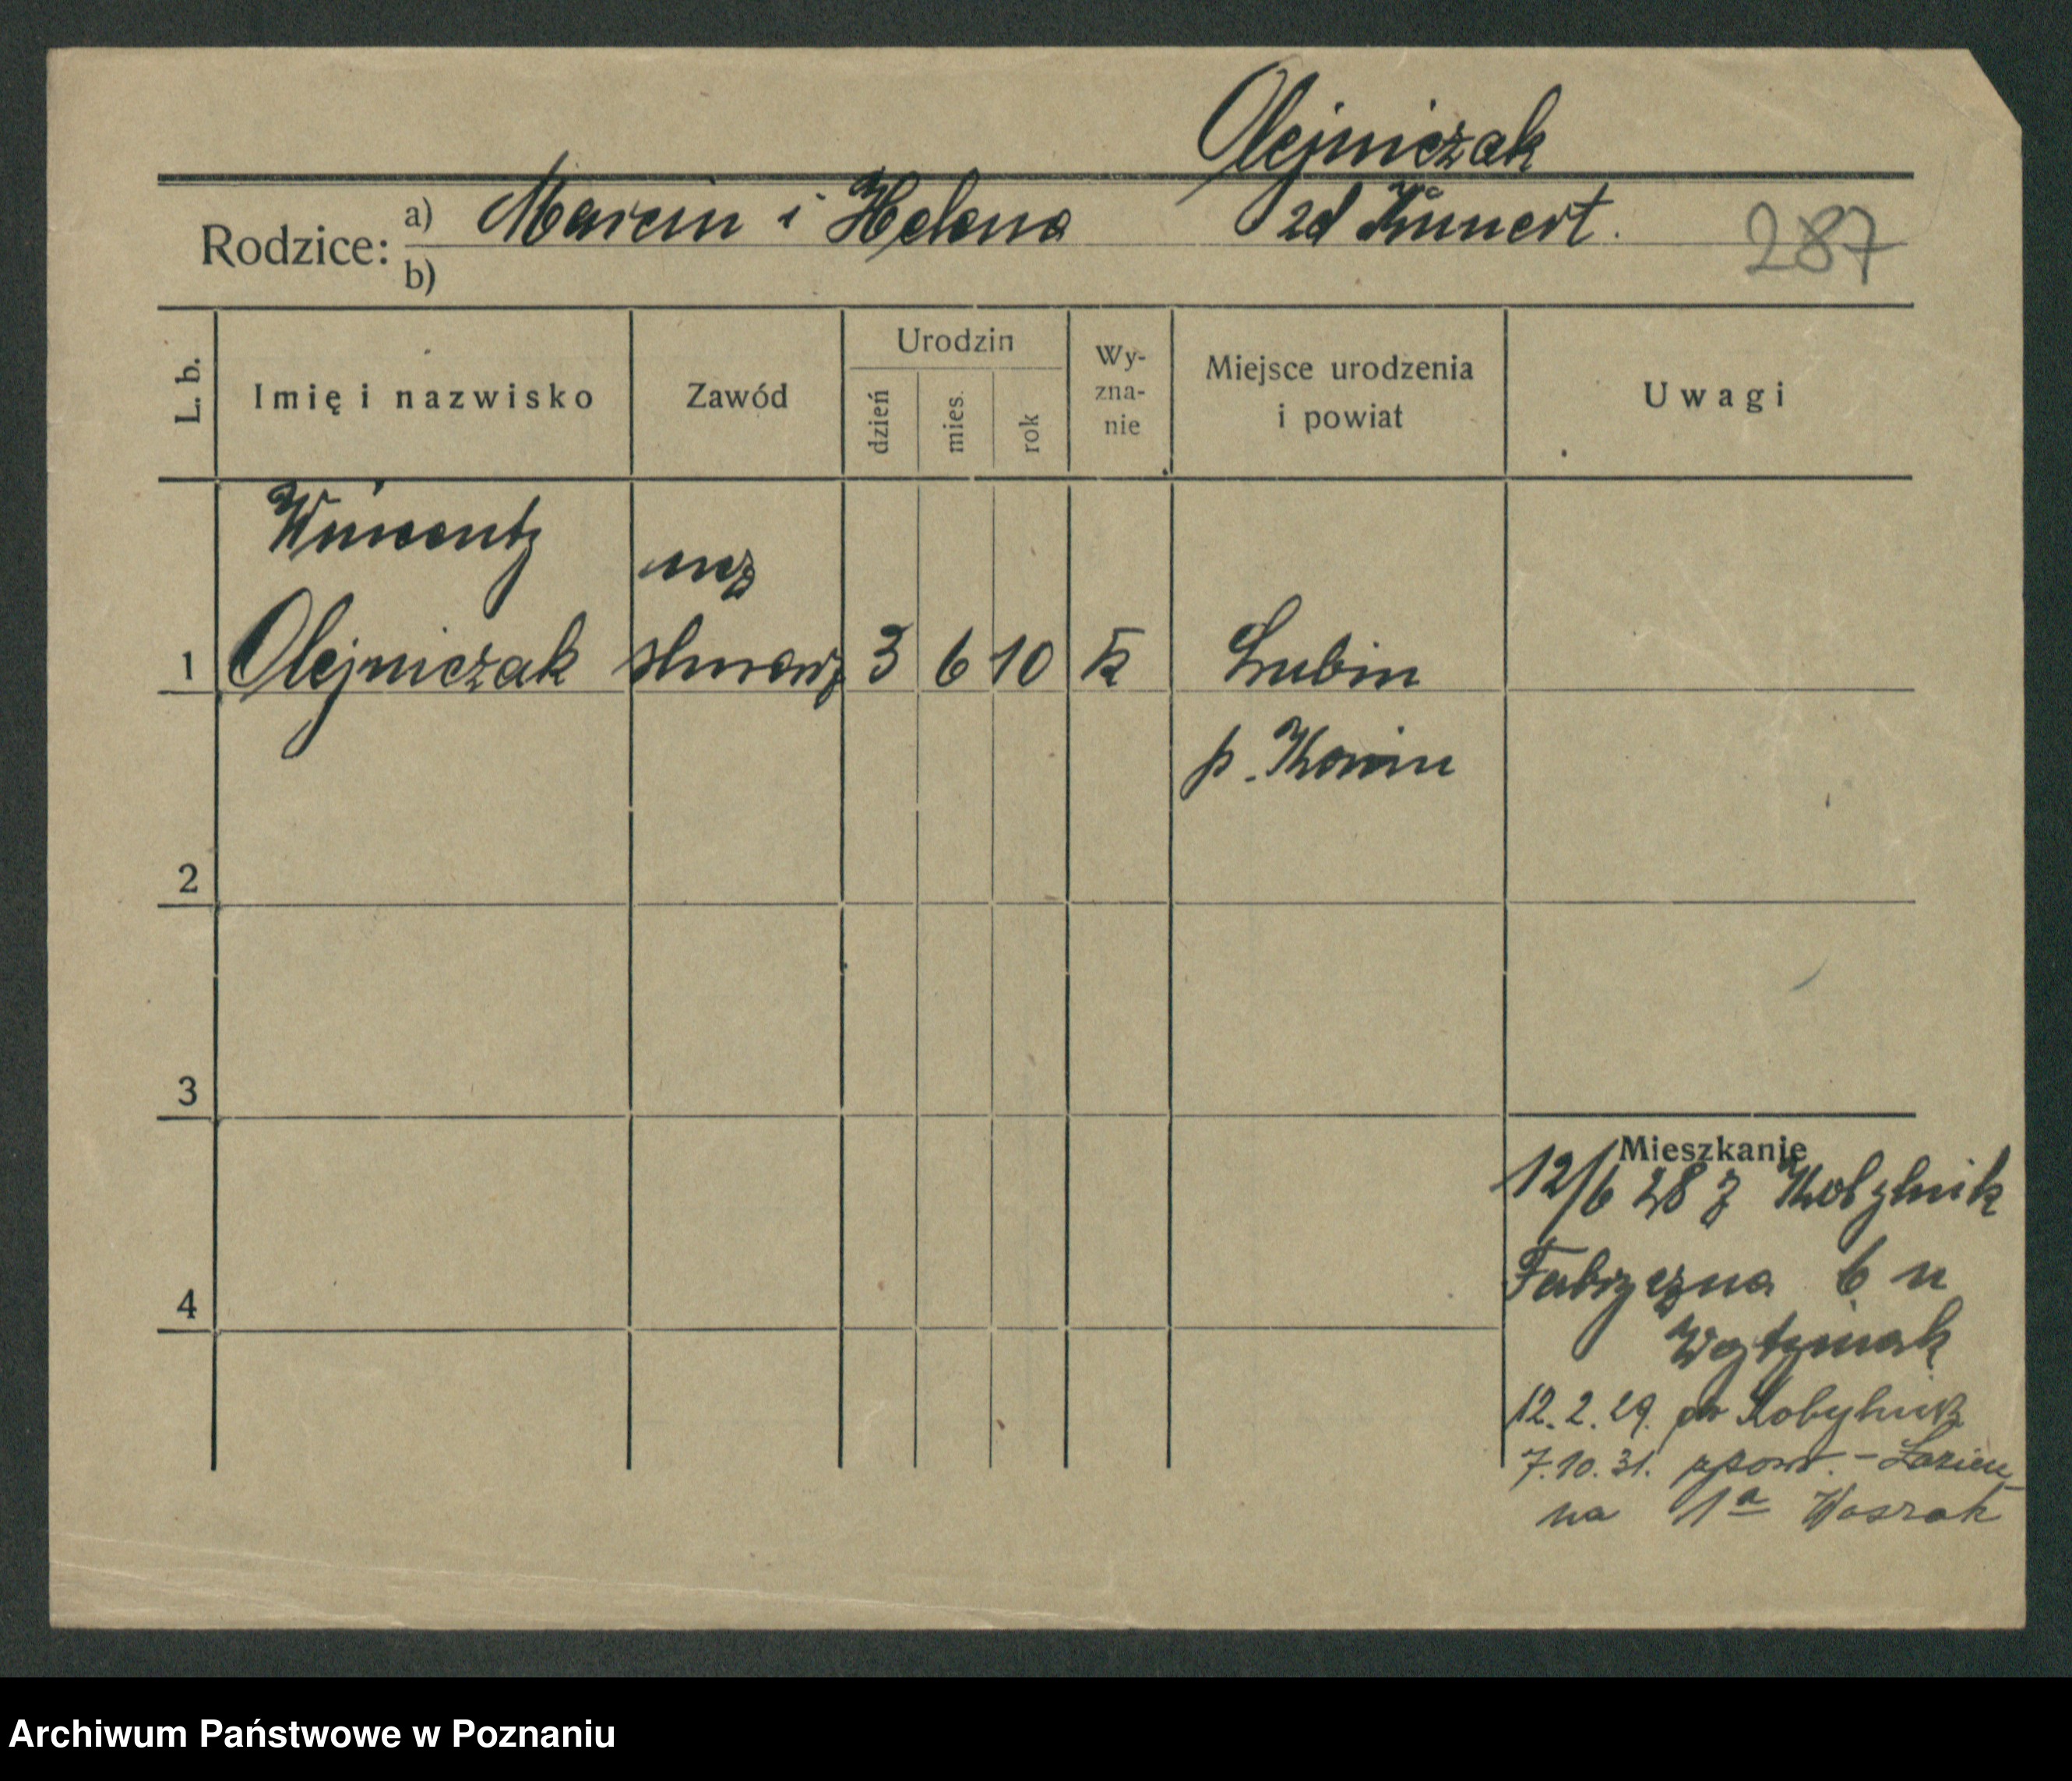 Olejniczak
Rodzice: a) Marcin i Helena zd Kunert. 287
b)
L. b.
Imię i nazwisko
Zawód
Urodzin
dzień
mies.
rok
Wy-
zna-
nie
Miejsce urodzenia
i powiat
Uwagi
Wincenty
ucz
1 Olejniczak ślusarz 3 6 10 k Lubin
p. Konin
2
3
4
Mieszkanie
12/6 28 z Kobylnik
Fabryczna 6 u
12.2.29. do Kobylnik
7.10.31. zpowr. - Łazien
na 1a
Archiwum Państwowe w Poznaniu